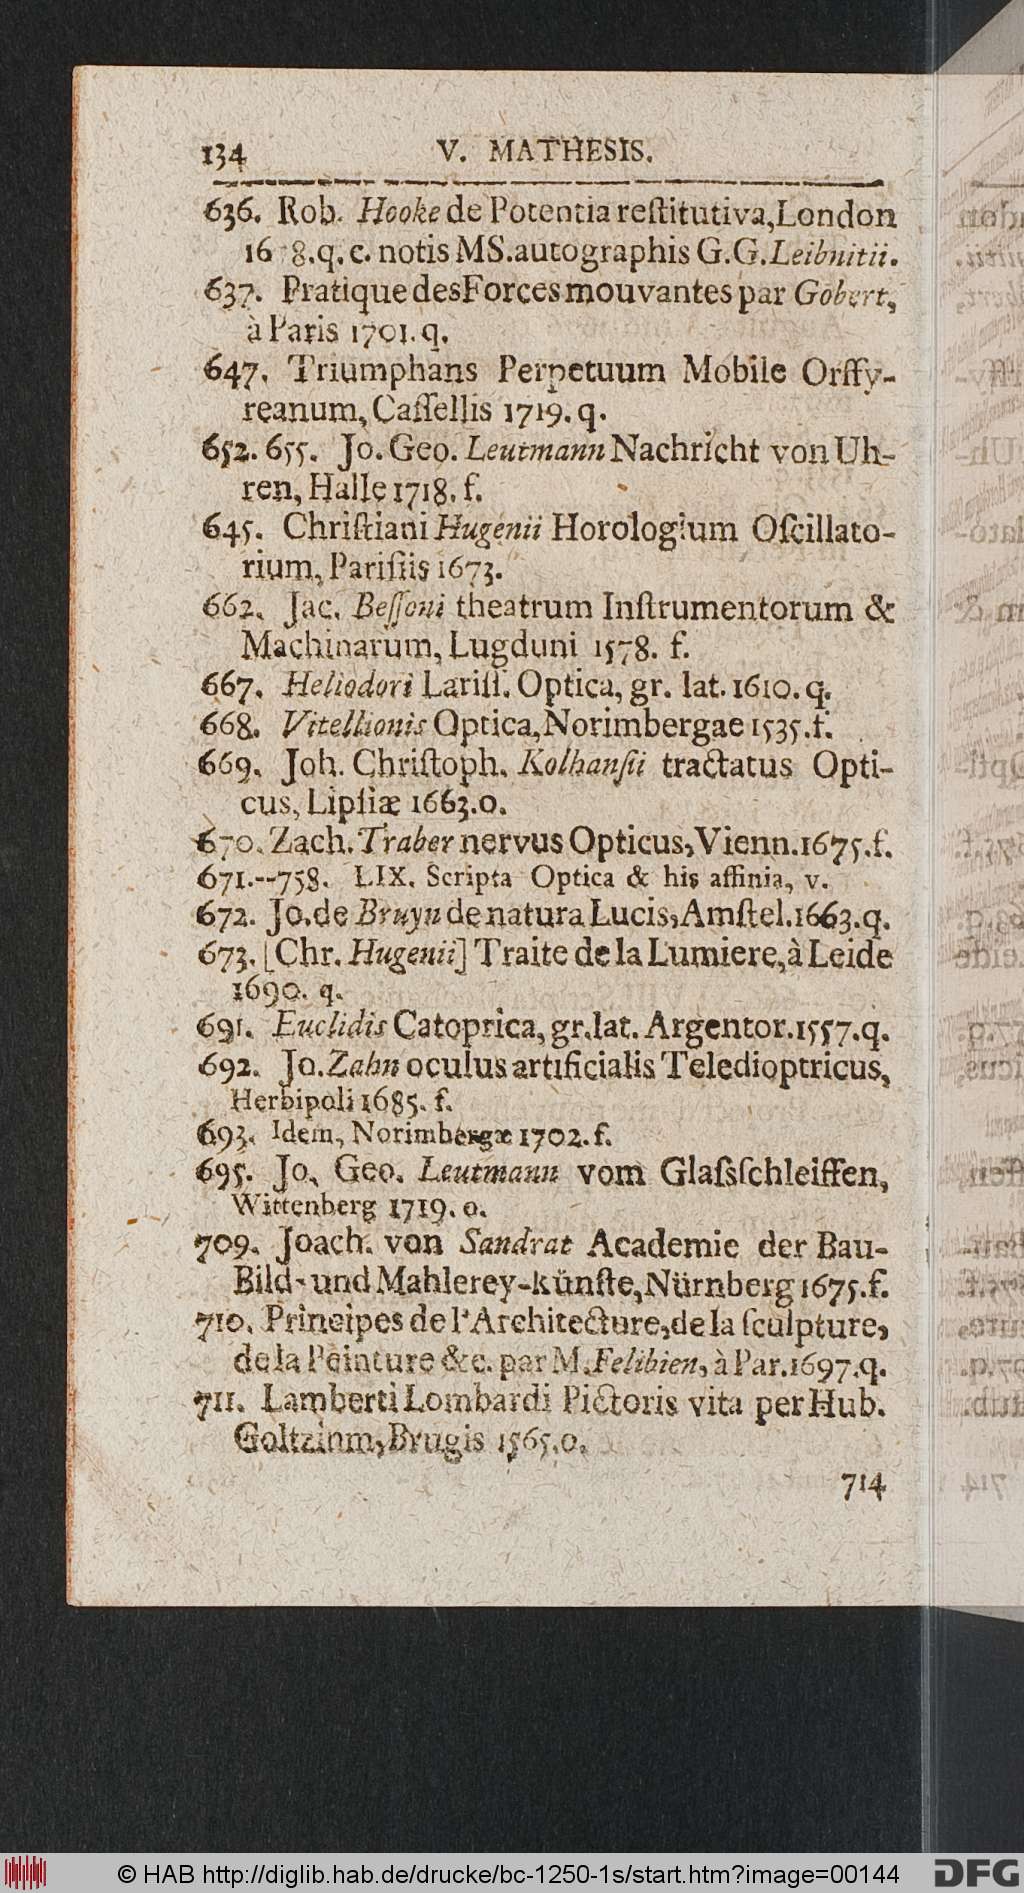 134 V. MATHESIS.
636. Rob. Hooke de Potentia reſtitutiva, London
16 8. q. c. notis MS. autographis G. G. Leibnitii.
637. Pratique des Forces mouvantes par Gobert,
à Paris 1701. q.
647. Triumphans Perpetuum Mobile Orffy-
reanum, Caſſellis 1719. q.
652. 655. Jo. Geo. Leutmann Nachricht von Uh-
ren, Halle 1718. f.
645. Chriſtiani Hugenii Horologium Oſcillato-
rium, Pariſiis 1673.
662. Jac. Beſſoni theatrum Inſtrumentorum &
Machinarum, Lugduni 1578. f.
667. Heliodori Lariſſ. Optica, gr. lat. 1610. q.
668. Vitellionis Optica, Norimbergae 1535. f.
669. Joh. Chriſtoph. Kolhanſii tractatus Opti-
cus, Lipſiæ 1663. o.
670. Zach. Traber nervus Opticus, Vienn. 1675. f.
671.--758. LIX. Scripta Optica & his affinia, v.
672. Jo. de Bruyn de natura Lucis, Amſtel. 1663. q.
673. [Chr. Hugenii] Traite de la Lumiere, à Leide
1690. q.
691. Euclidis Catoprica, gr. lat. Argentor. 1557. q.
692. Jo. Zahn oculus artificialis Teledioptricus,
Herbipoli 1685. f.
693. Idem, Norimbergæ 1702. f.
695. Jo. Geo. Leutmann vom Glaſsſchleiffen,
Wittenberg 1719. o.
709. Joach. von Sandrat Academie der Bau-
Bild- und Mahlerey-künſte, Nürnberg 1675. f.
710. Principes de l'Architecture, de la ſculpture,
de la Peinture &c. par M. Felibien, à Par. 1697. q.
711. Lamberti Lombardi Pictoris vita per Hub.
Goltzium, Brugis 1565. o.
714
© HAB http://diglib.hab.de/drucke/bc-1250-1s/start.htm?image=00144 DFG